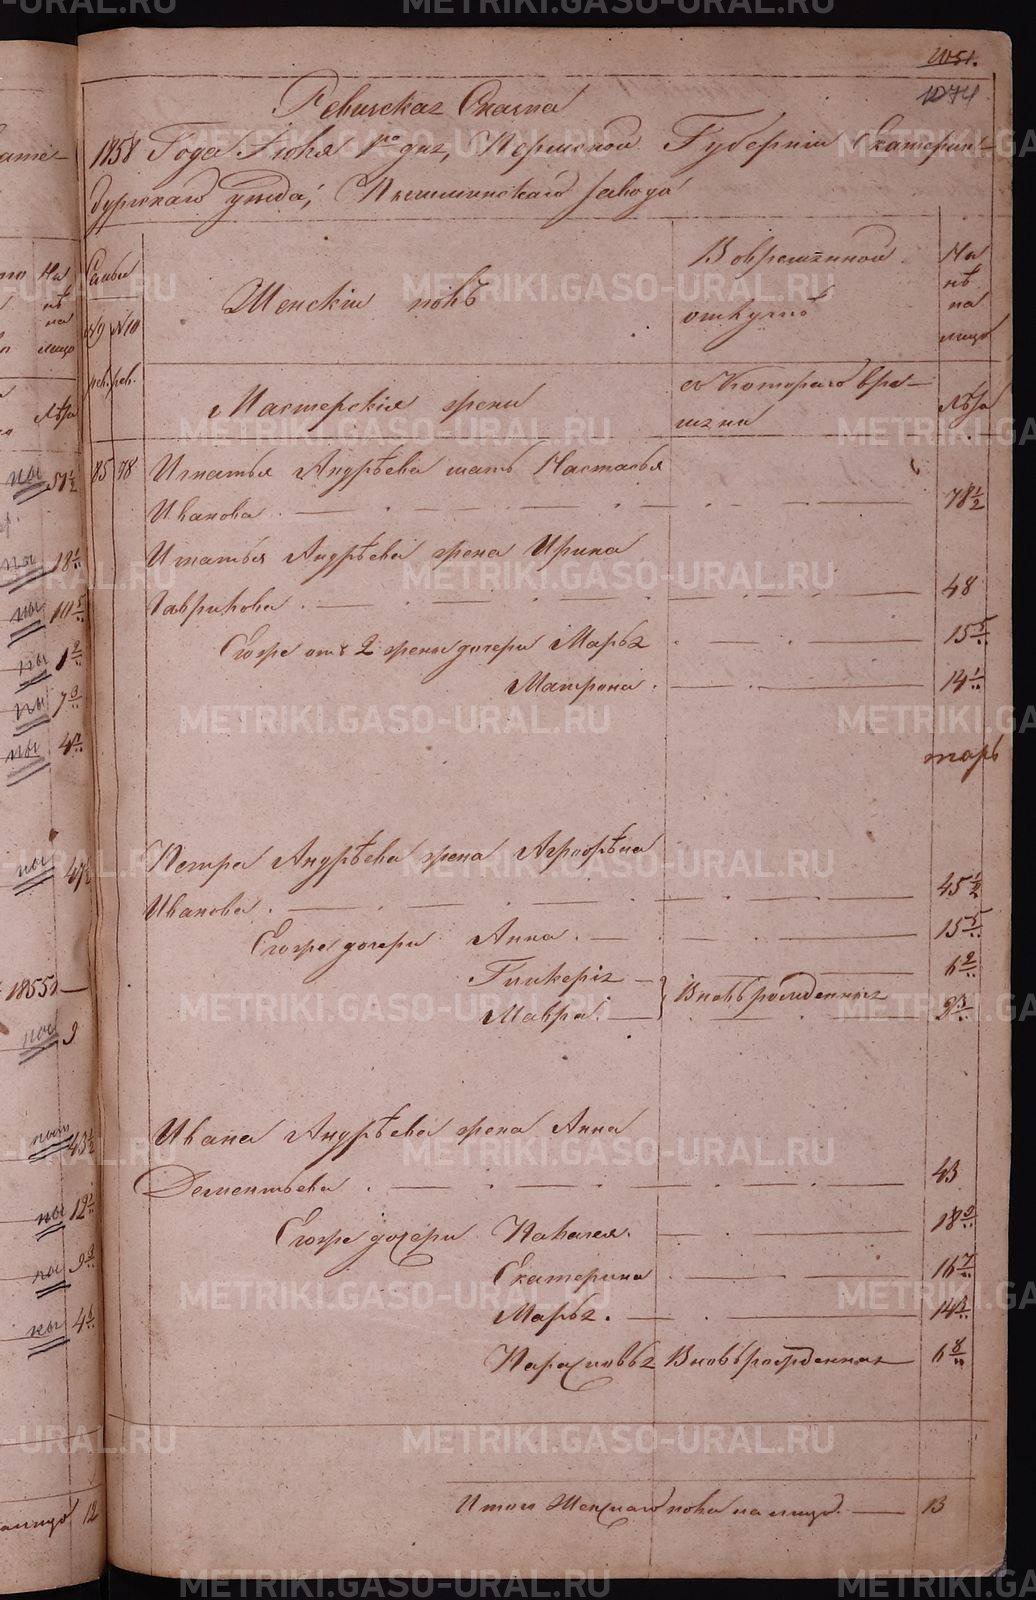 1051.
1074
Ревизская Сказка
1858 Года Июня 1го дня, Пермской Губерніи Екатерин-
бургскаго уѣзда, Пышминскаго завода
Семьи
№9 №10
рев. рев.
Женскій полъ
Во временной
отлучкѣ
На
лѣ
на
лицо
Мастерскія жены
съ Котораго вре-
мени
Лѣта
85 78 Игнатья Андрѣева мать Настасья
Иванова. 78 1/2
Игнатья Андрѣева жена Ирина
Гаврилова. 48
Егоже отъ 2 жены дочери Марья 15 5/..
Матрона. 14 1/..
Петра Андрѣева жена Агрофѣна
Иванова. 45 1/2
Егоже дочери Анна. 15 5/..
Гликерія 6 2/..
Мавра. Вновьрожденныя 2 3/..
Ивана Андрѣева жена Анна
Дементьева. 43
Егоже дочери Палагея. 18 9/..
Екатерина 16 7/..
Марья. 14 3/..
Парасковья Вновьрожденная 6 8/..
Итого Женскаго пола на лицо. 13
METRIKI.GASO-URAL.RU